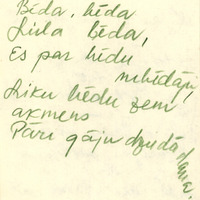 Bēda, bēda
Liela bēda,
Es par bēdu
nebēdāju,
Liku bēdu zem
akmens
Pāri gāju dziedādama.